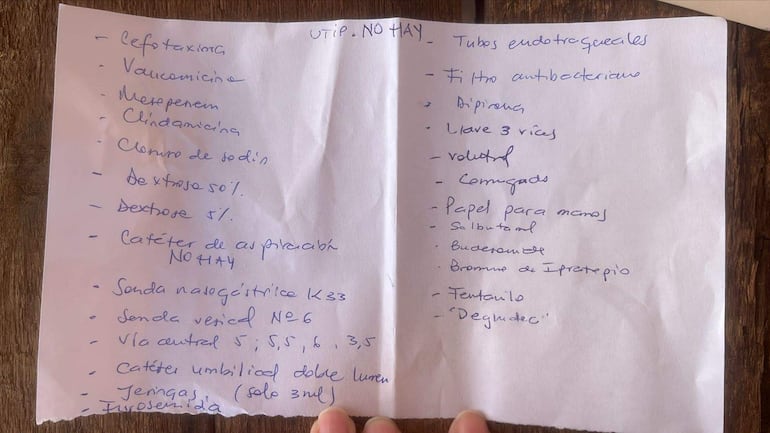 UTIP. NO HAY
- Cefotaxima
- Vancomicina
- Meropenem
- Clindamicina
- Cloruro de sodio
- Dextrose 50%.
- Dextrose 5%.
- Catéter de aspiración
NO HAY
- Sonda nasogástrica K33
- Sonda vesical Nº 6
- Vía central 5; 5,5, 6, 3,5
- Catéter umbilical doble lumen
- Jeringas (solo 3 ml)
- Furosemida
- Tubos endotraqueales
- Filtro antibacteriano
- Dipirona
- Llave 3 vías
- Volutrol
- Corrugado
- Papel para manos
- Salbutamol
- Budesonide
- Bromuro de Ipratropio
- Fentanilo
- "Degludec"